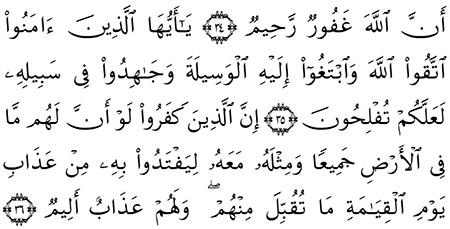 أَنَّ ٱللَّهَ غَفُورٌ رَّحِيمٌ ﴿٣٤﴾ يَـٰٓأَيُّهَا ٱلَّذِينَ ءَامَنُوا۟
ٱتَّقُوا۟ ٱللَّهَ وَٱبْتَغُوٓا۟ إِلَيْهِ ٱلْوَسِيلَةَ وَجَـٰهِدُوا۟ فِى سَبِيلِهِۦ
لَعَلَّكُمْ تُفْلِحُونَ ﴿٣٥﴾ إِنَّ ٱلَّذِينَ كَفَرُوا۟ لَوْ أَنَّ لَهُم مَّا
فِى ٱلْأَرْضِ جَمِيعًا وَمِثْلَهُۥ مَعَهُۥ لِيَفْتَدُوا۟ بِهِۦ مِنْ عَذَابِ
يَوْمِ ٱلْقِيَـٰمَةِ مَا تُقُبِّلَ مِنْهُمْ ۖ وَلَهُمْ عَذَابٌ أَلِيمٌ ﴿٣٦﴾